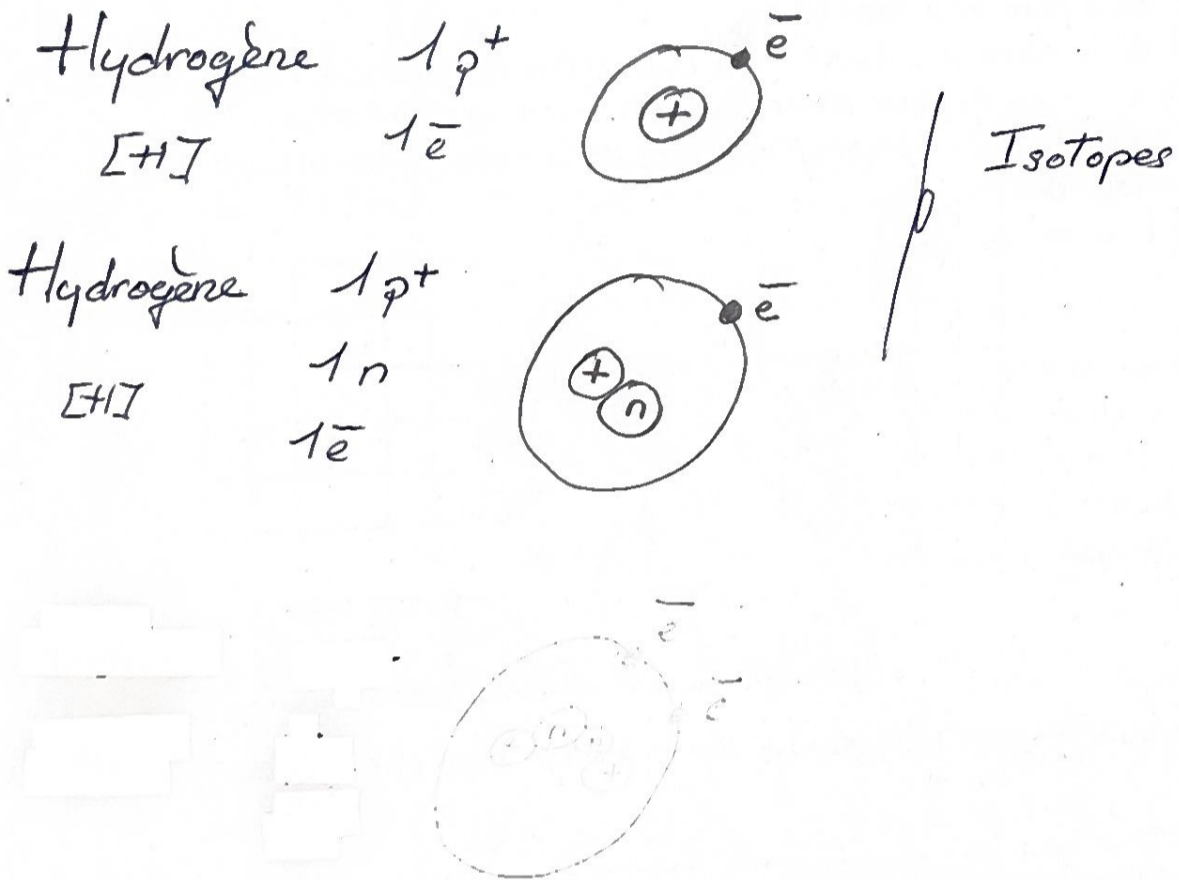 Hydrogène 1 p⁺ e⁻
[H] 1 e⁻ +
Isotopes
Hydrogène 1 p⁺ e⁻
1 n +
[H] n
1 e⁻
e⁻
e⁻